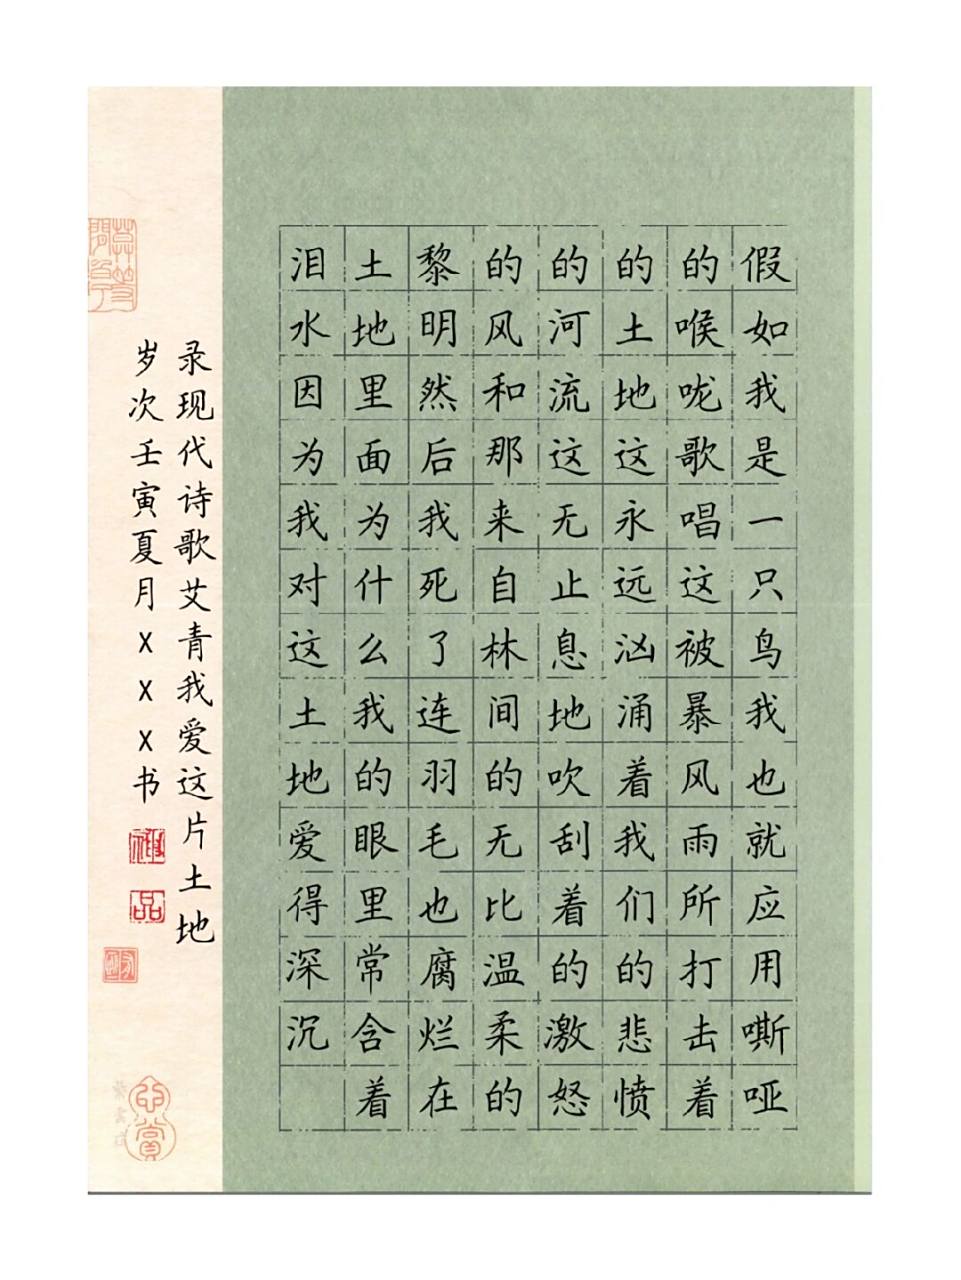 假如我是一只鸟我也就应用嘶哑
的喉咙歌唱这被暴风雨所打击着
的土地这永远汹涌着我们的悲愤
的河流这无止息地吹刮着的激怒
的风和那来自林间的无比温柔的
黎明然后我死了连羽毛也腐烂在
土地里面为什么我的眼里常含着
泪水因为我对这土地爱得深沉
录现代诗歌艾青我爱这片土地
岁次壬寅夏月xxx书